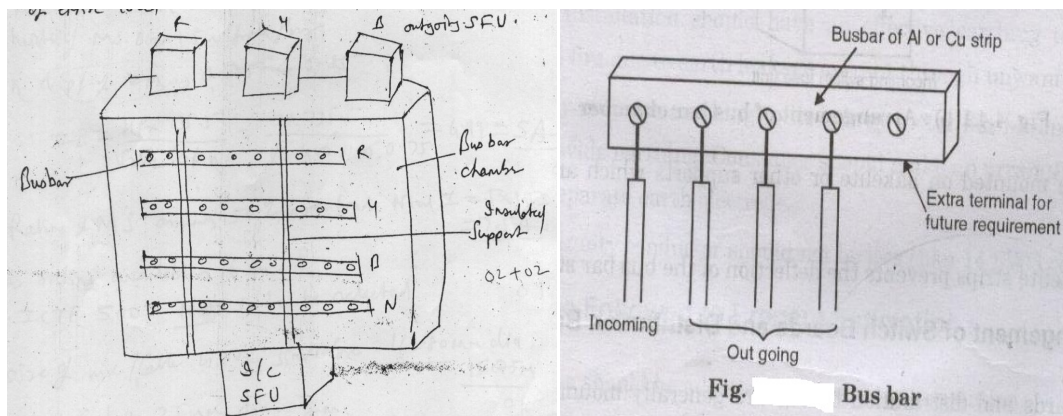 R Y B outgoing SFU.
Busbar
R
Bus bar
chamber
Y
Insulated
Support
B
02 + 02
N
I/C
SFU
Busbar of Al or Cu strip
Extra terminal for
future requirement
Incoming
Out going
Fig. Bus bar